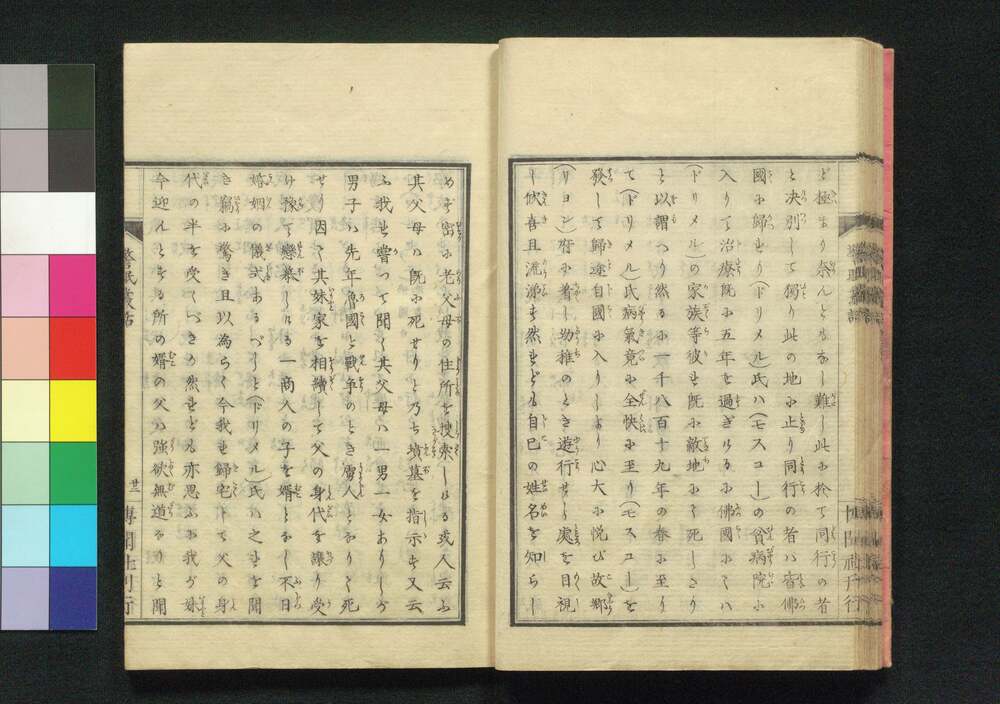 ど極まり奈んともなし難し此に於て同行の者
と决別して獨り此の地に止り同行の者ハ皆佛
國に歸せり(ドリメル)氏ハ(モスコー)の貧病院に
入りて治療既に五年を過ぎけるに佛國にてハ
(ドリメル)の家族等彼せ既に敵地にて死しさり
と以謂へり然るに一千八百十九年の春に至り
て(ドリメル)氏病氣竟に全快に至り(モスコー)を
發して歸途自國に入りしより心大に悦び故郷
(リヨン)府に着し幼稚のとき遊行せし處を目視
し欣喜且流涕す然せども自己の姓名を知らし
めず密に老父母の住所を搜索しける或人云ふ
其父母ハ既に死せりと乃ち墳墓を指示す又云
ふ我せ嘗つて聞く其父母ハ一男一女ありしが
男子ハ先年魯國と戰爭のとき虜人となりて死
せり因て其妹家を相續して父の身代を讓り受
け豫て戀慕しける一商人の子を婿となし不日
婚姻の儀式あるべしと(ドリメル)氏ハ之せを聞
き竊に驚き且以為らく今我せ歸宅して父の身
代の半を受くべきの然せども亦思ふに我が妹
今迎んとする所の婿の父ハ強欲無道なりと聞
警眠叢話
廿一
博聞社刊行